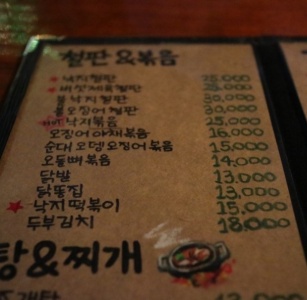 철판 & 볶음
★ 낙지철판 25,000
★ 버섯제육철판 25,000
불낙지철판 30,000
불오징어철판 30,000
낙지볶음 25,000
오징어야채볶음 16,000
순대오뎅오징어볶음 15,000
오돌뼈볶음 14,000
닭발 13,000
닭똥집 13,000
★ 낙지떡볶이 15,000
두부김치 18,000
탕&찌개